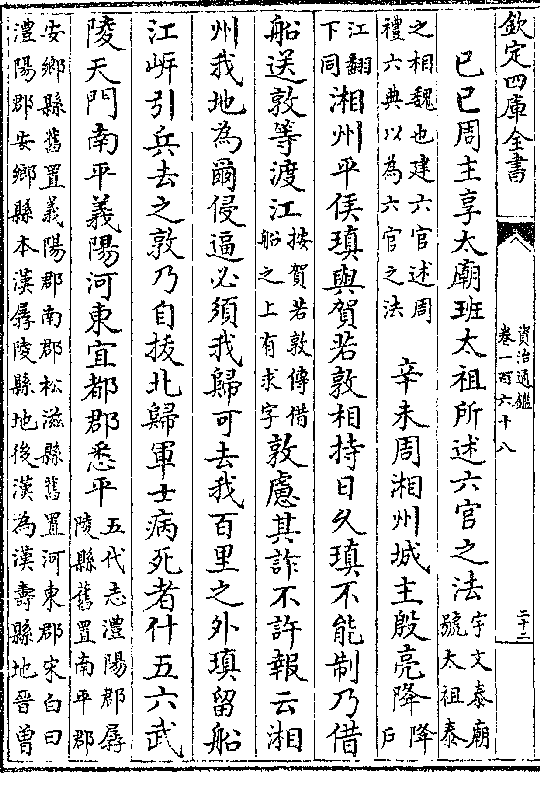 欽定四庫全書
資治通鑑
卷一百六十八
二十二
己巳周主享太廟班太祖所述六官之法
宇文泰廟
號太祖泰
之相魏也建六官述周
禮六典以為六官之法
辛未周湘州城主殷亮降
降戶
江翻
下同
湘州平侯瑱與賀若敦相持日久瑱不能制乃借
船送敦等渡江
按賀若敦傳借
船之上有求字
敦慮其詐不許報云湘
州我地為爾侵逼必須我歸可去我百里之外瑱留船
江㟁引兵去之敦乃自拔北歸軍士病死者什五六武
陵天門南平義陽河東宜都郡悉平
五代志澧陽郡孱
陵縣舊置南平郡
安鄉縣舊置義陽郡南郡松滋縣舊置河東郡宋白曰
澧陽郡安鄉縣本漢孱陵縣地後漢為漢壽縣地晉曾